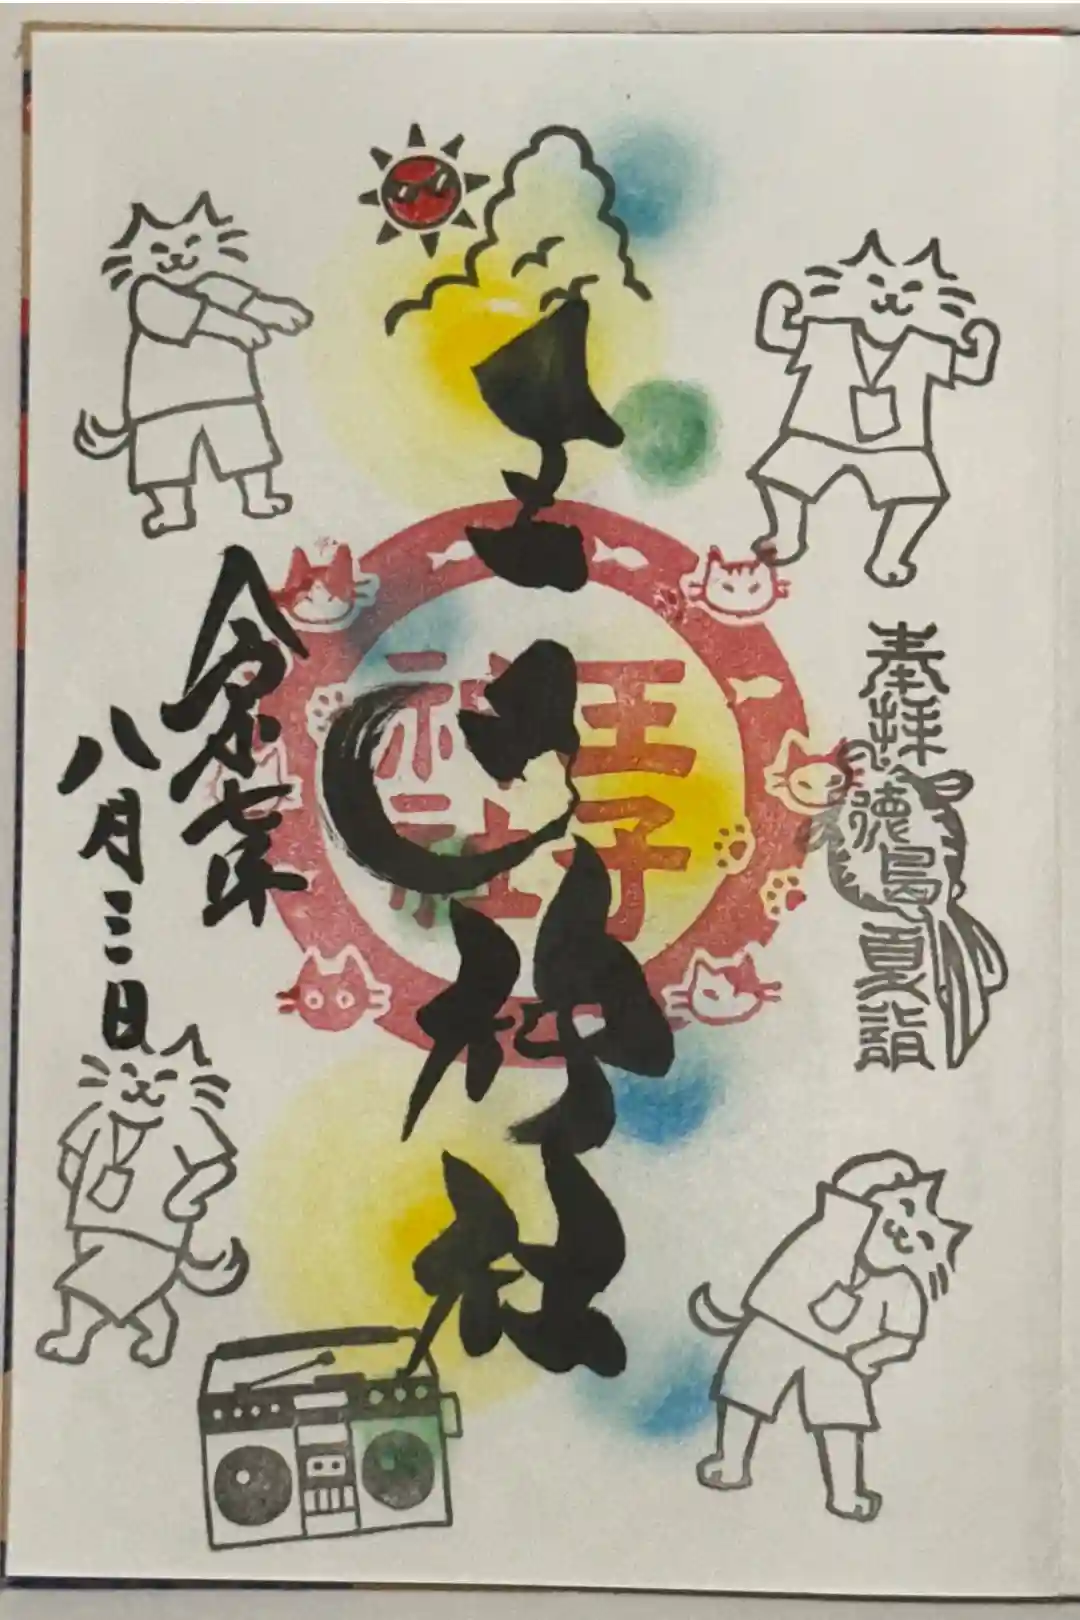 奉拝
徳島
夏詣
王子神社
王子
神社
令和七年
八月二日